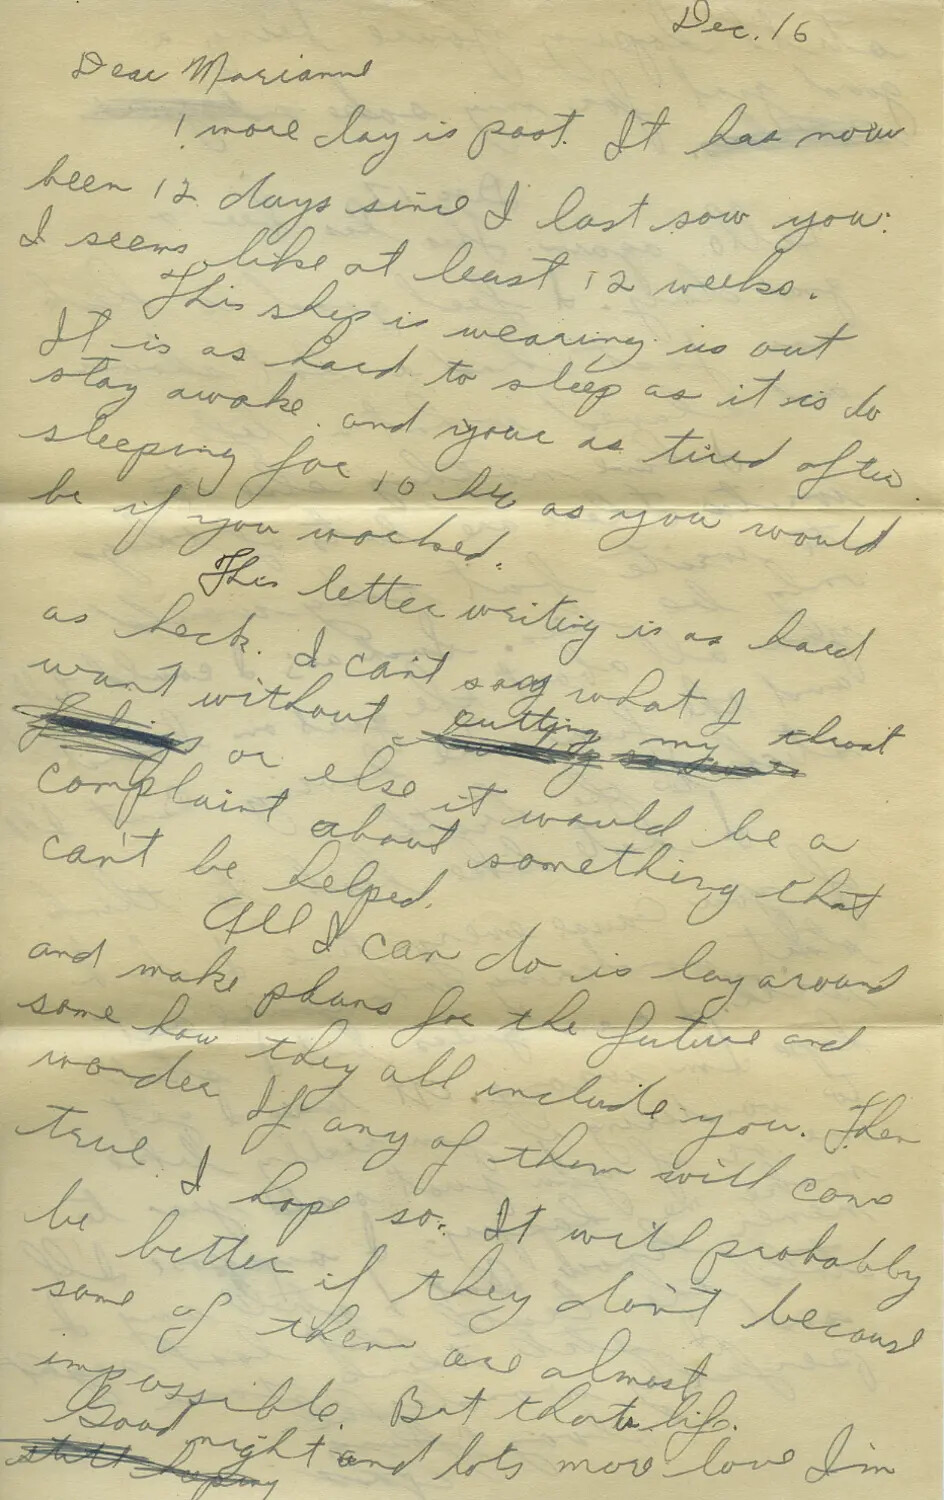 Dec. 16
Dear Marianne
1 more day is past. It has now
been 12 days since I last saw you.
I seems like at least 12 weeks.
This ship is wearing us out
It is as hard to sleep as it is to
stay awake and your as tired after
sleeping for 10 hrs as you would
be if you worked.
This letter writing is as hard
as heck. I can't say what I
want without cutting my throat
or else it would be a
complaint about something that
can't be helped.
All I can do is lay around
and make plans for the future and
some how they all include you. Then
wonder If any of them will come
true. I hope so. It will probably
be better if they don't because
some of them are almost
impossible. But thats life.
Good night and lots more love I'm
still hoping